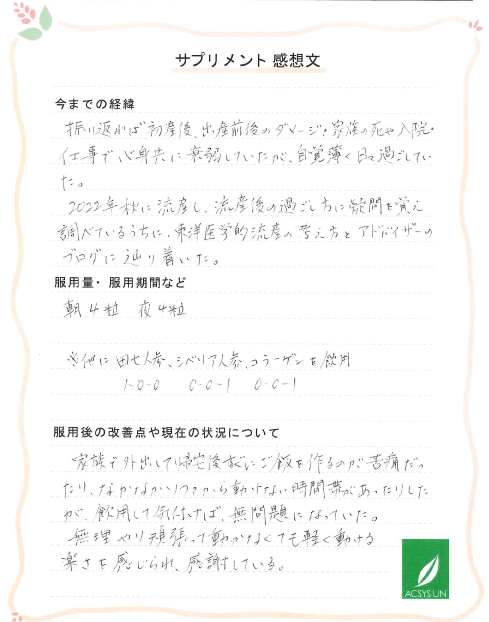 サプリメント 感想文
今までの経緯
振り返れば初産後、出産前後のダメージ・家族の死や入院・
仕事で心身共に衰弱していたが、自覚薄く日々過ごしてい
た。
2022年秋に流産し、流産後の過ごし方に疑問を覚え
調べているうちに、東洋医学的流産の考え方とアドバイザーの
ブログに辿り着いた。
服用量・服用期間など
朝4粒 夜4粒
※他に 田七人参、シベリア人参、コラーゲンを飲用
1-0-0 0-0-1 0-0-1
服用後の改善点や現在の状況について
家族で外出して帰宅後すぐにご飯を作るのが苦痛だっ
たり、なかなかソファから動けない時間帯があったりした
が、飲用して気付けば、無問題になっていた。
無理やり頑張って動かなくても軽く動ける
楽さを感じられ、感謝している。
ACSYSUN